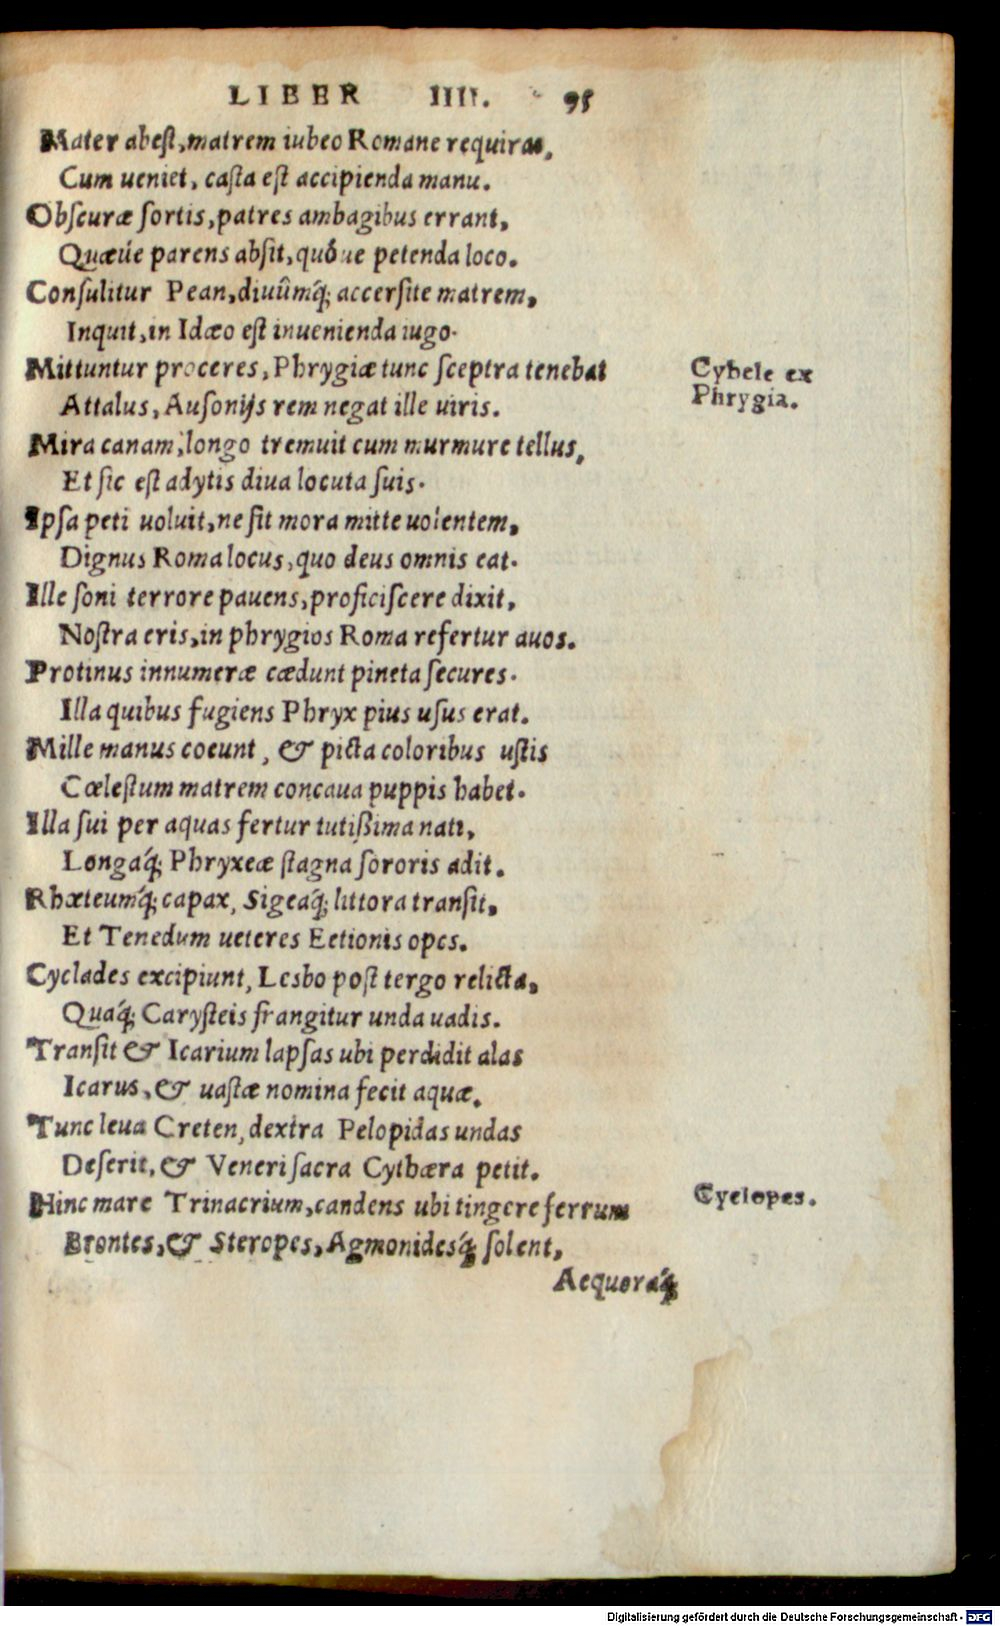 LIBER IIII. 95
Mater abeſt, matrem iubeo Romane requiras,
Cum ueniet, caſta eſt accipienda manu.
Obſcuræ ſortis, patres ambagibus errant,
Quæúe parens abſit, quóue petenda loco.
Conſulitur Pean, diuûmq́; accerſite matrem,
Inquit, in Idæo eſt inuenienda iugo.
Mittuntur proceres, Phrygiæ tunc ſceptra tenebat
Cybele ex
Phrygia.
Attalus, Auſonijs rem negat ille uiris.
Mira canam, longo tremuit cum murmure tellus,
Et ſic eſt adytis diua locuta ſuis.
Ipſa peti uoluit, ne ſit mora mitte uolentem,
Dignus Roma locus, quo deus omnis eat.
Ille ſoni terrore pauens, proficiſcere dixit,
Noſtra eris, in phrygios Roma refertur auos.
Protinus innumeræ cædunt pineta ſecures.
Illa quibus fugiens Phryx pius uſus erat.
Mille manus coeunt, & picta coloribus uſtis
Cœleſtum matrem concaua puppis habet.
Illa ſui per aquas fertur tutißima nati,
Longaq́; Phryxeæ ſtagna ſororis adit.
Rhœteumq́; capax, Sigeaq́; littora tranſit,
Et Tenedum ueteres Eetionis opes.
Cyclades excipiunt, Lesbo poſt tergo relicta,
Quaq́; Caryſteis frangitur unda uadis.
Tranſit & Icarium lapſas ubi perdidit alas
Icarus, & uaſtæ nomina fecit aquæ.
Tunc leua Creten, dextra Pelopidas undas
Deſerit, & Veneri ſacra Cythæra petit.
Hinc mare Trinacrium, candens ubi tingere ferrum
Cyclopes.
Brontes, & Steropes, Agmonidesq́; ſolent,
Aequoraq́;
Digitalisierung gefördert durch die Deutsche Forschungsgemeinschaft - DFG